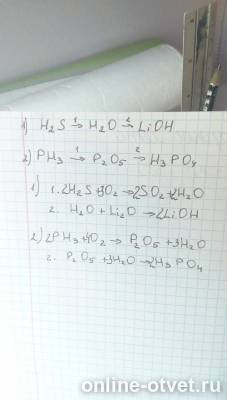 1) H₂S →¹ H₂O →² LiOH
2) PH₃ →¹ P₂O₅ →² H₃PO₄
1) 1. 2H₂S+3O₂→2SO₂+2H₂O
2. H₂O + Li₂O → 2LiOH
2) 2PH₃+4O₂ → P₂O₅ + 3H₂O
2. P₂O₅ + 3H₂O → 2H₃PO₄
online-otvet.ru